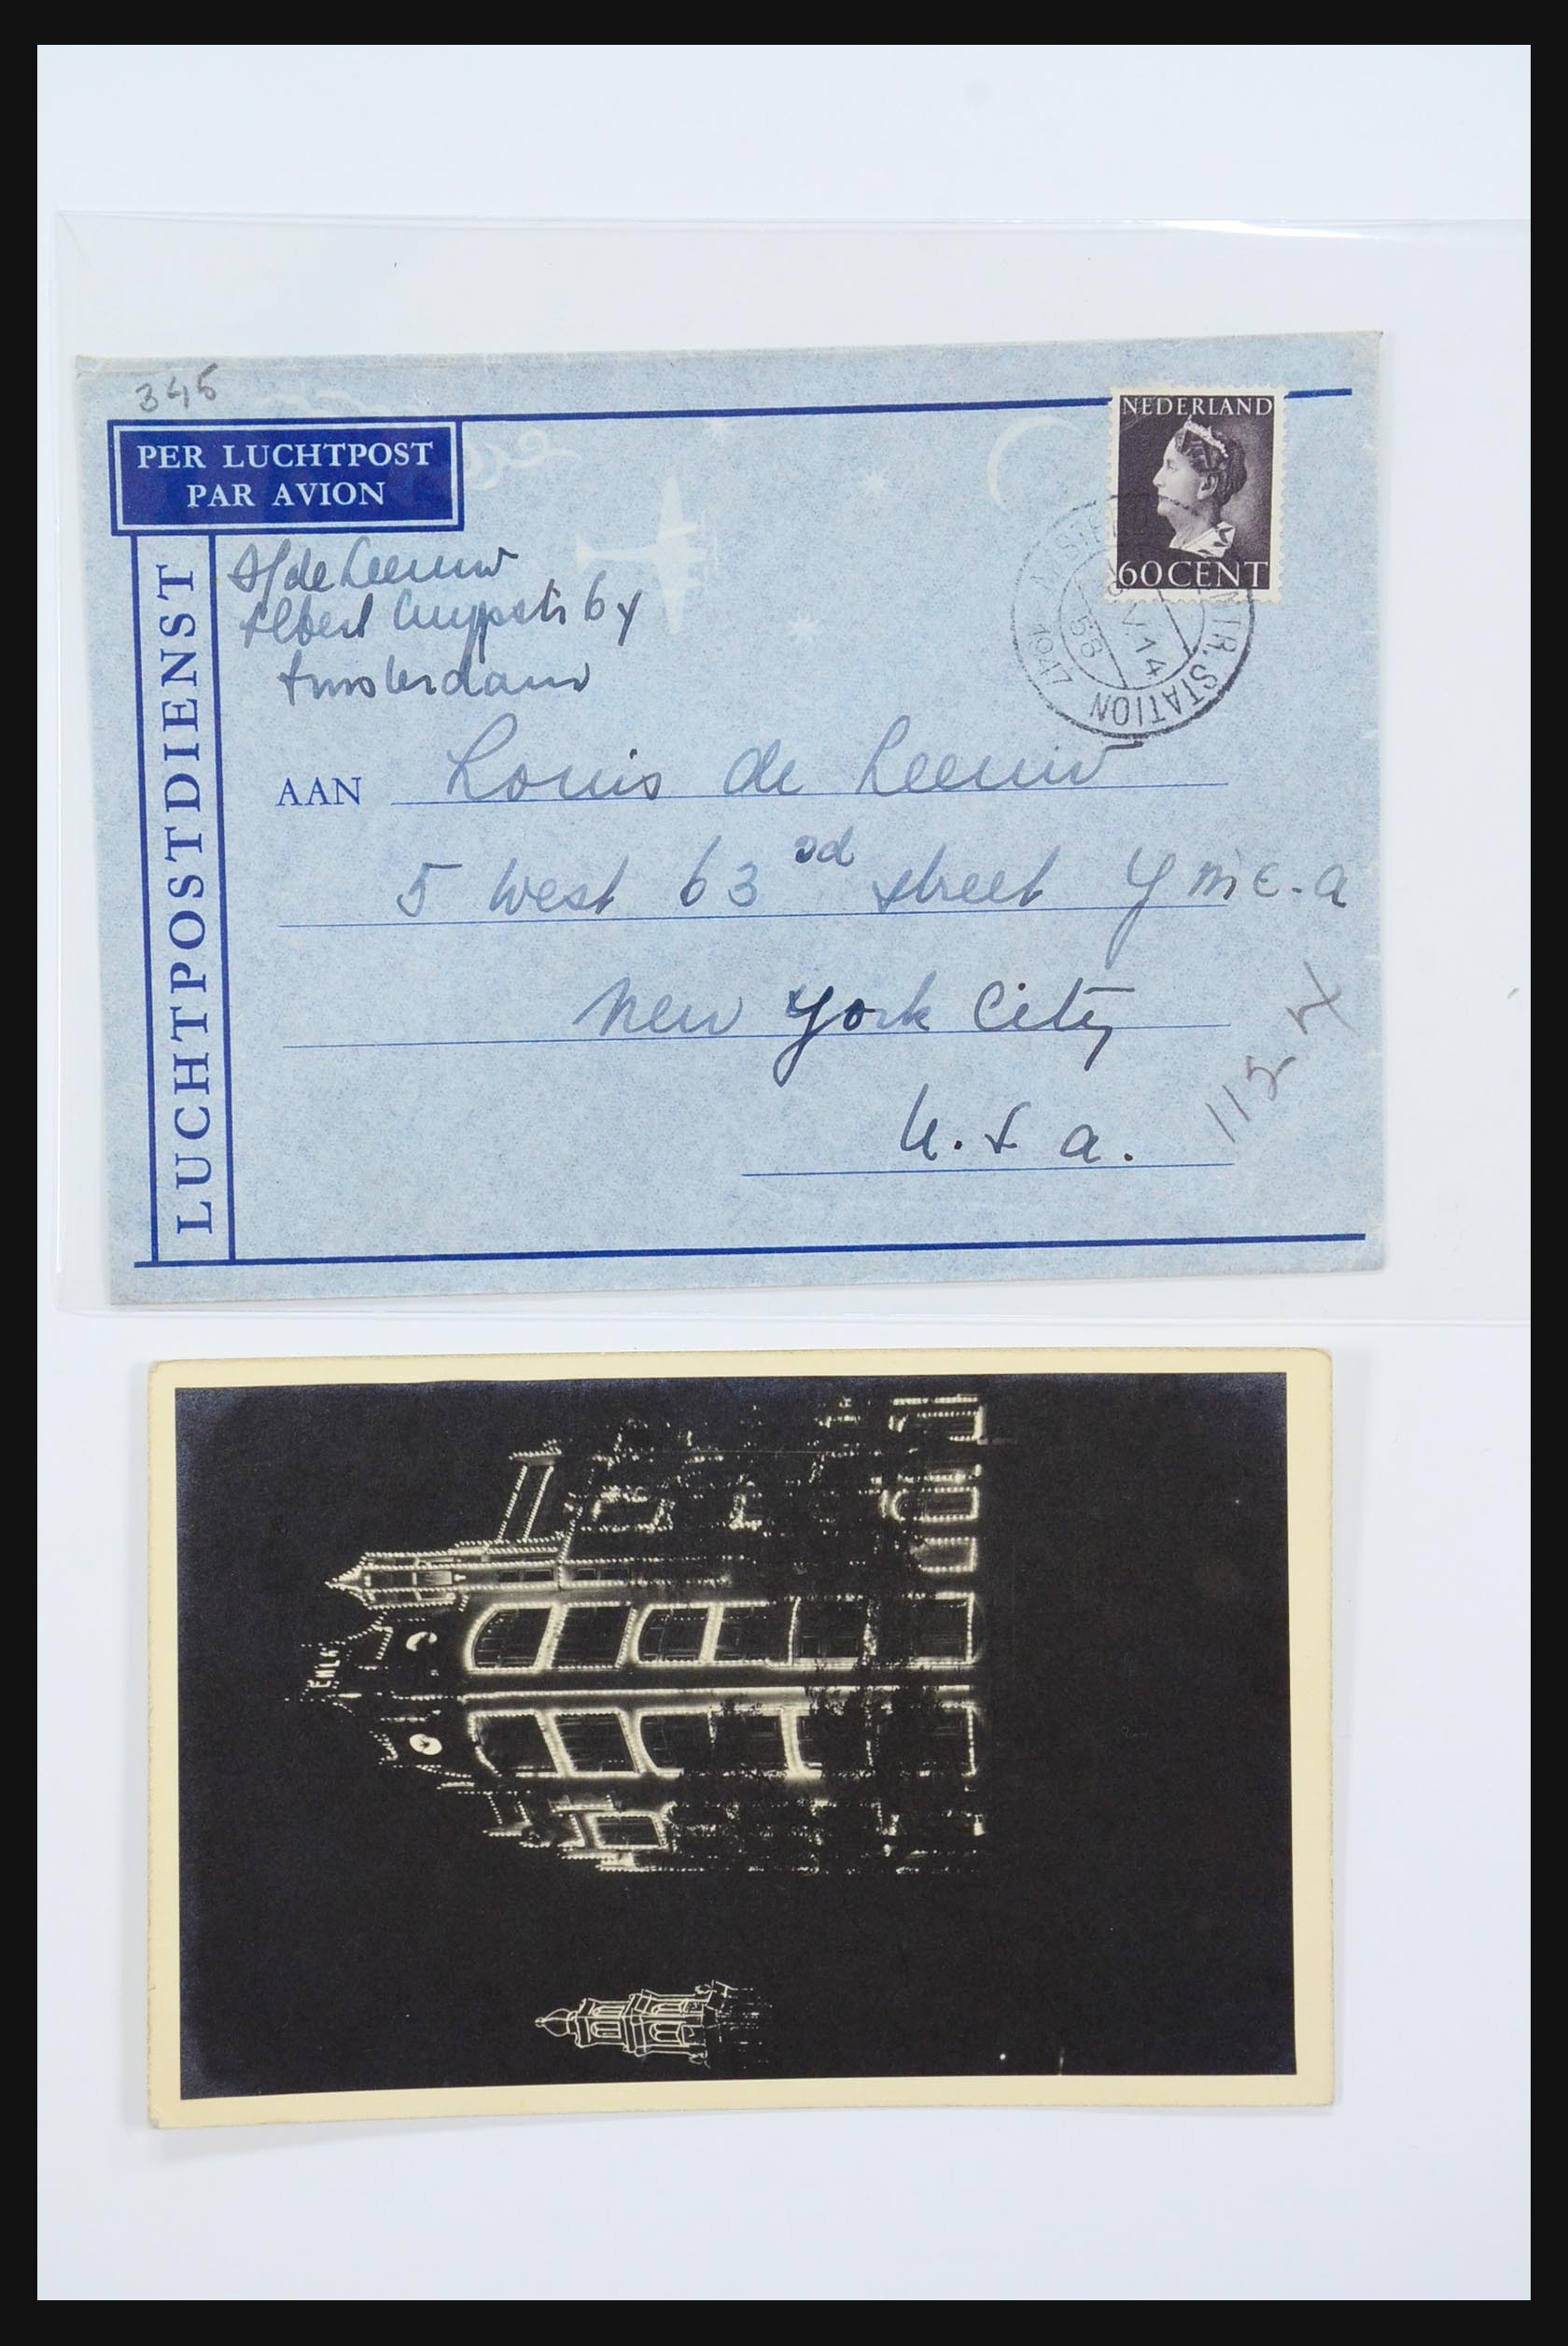 345
PER LUCHTPOST
PAR AVION
LUCHTPOSTDIENST
NEDERLAND
60 CENT
STATION
1947
de Leeuw
Albert Cuypstr 64
Amsterdam
AAN Louis de Leeuw
5 West 63 rd street Y m c. a
New York City
U. S a.